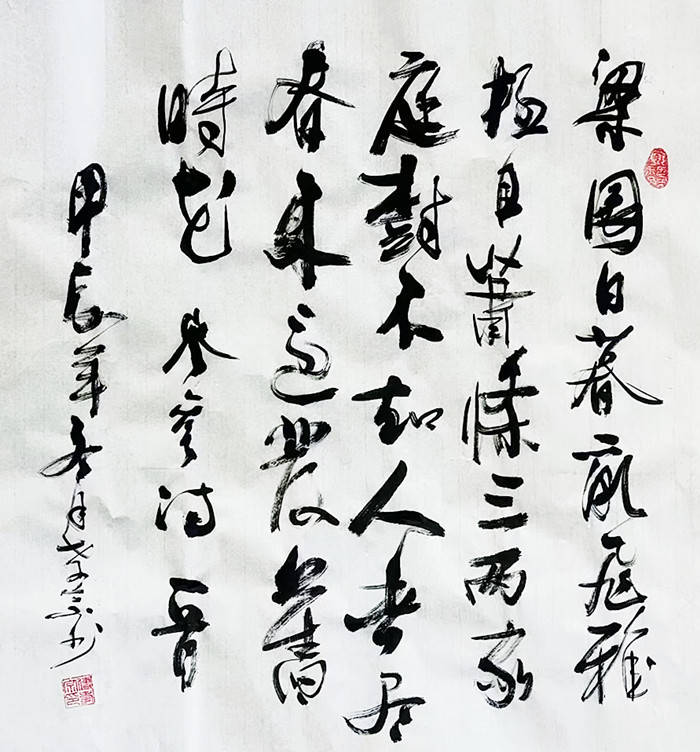 梁園日暮亂飛鴉
極目蕭條三两家
庭樹不知人去尽
春来還發舊
時花 岑参詩一首
甲辰年冬月